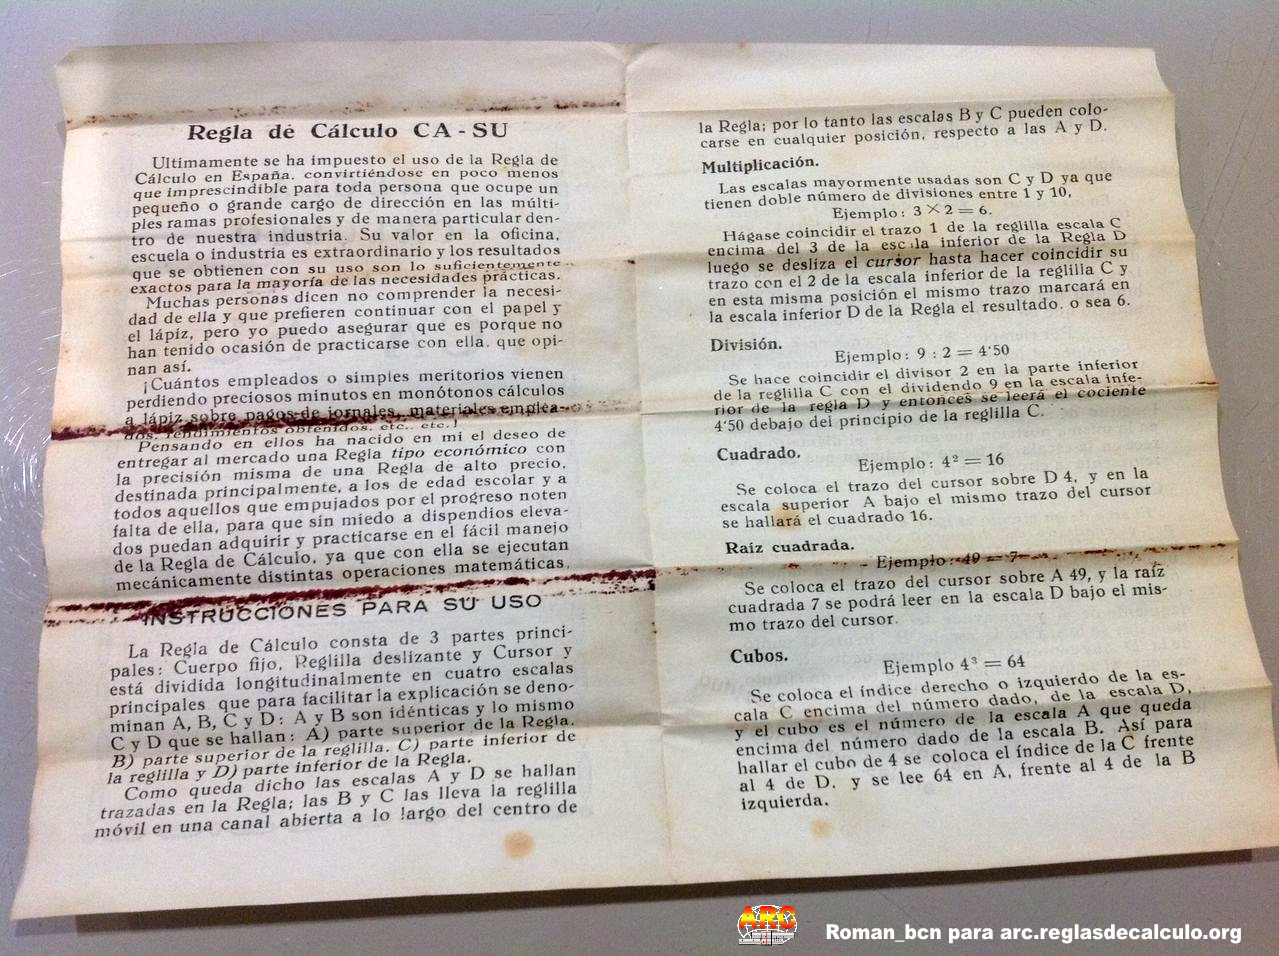 Regla de Cálculo CA - SU
Ultimamente se ha impuesto el uso de la Regla de
Cálculo en España, convirtiéndose en poco menos
que imprescindible para toda persona que ocupe un
pequeño o grande cargo de dirección en las múlti-
ples ramas profesionales y de manera particular den-
tro de nuestra industria. Su valor en la oficina,
escuela o industria es extraordinario y los resultados
que se obtienen con su uso son lo suficientemente
exactos para la mayoría de las necesidades prácticas.
Muchas personas dicen no comprender la necesi-
dad de ella y que prefieren continuar con el papel y
el lápiz, pero yo puedo asegurar que es porque no
han tenido ocasión de practicarse con ella, que opi-
nan así.
¡Cuántos empleados o simples meritorios vienen
perdiendo preciosos minutos en monótonos cálculos
a lápiz sobre pagos de jornales, materiales emplea-
dos, rendimientos obtenidos, etc., etc.!
Pensando en ellos ha nacido en mi el deseo de
entregar al mercado una Regla tipo económico con
la precisión misma de una Regla de alto precio,
destinada principalmente, a los de edad escolar y a
todos aquellos que empujados por el progreso noten
falta de ella, para que sin miedo a dispendios eleva-
dos puedan adquirir y practicarse en el fácil manejo
de la Regla de Cálculo, ya que con ella se ejecutan
mecánicamente distintas operaciones matemáticas.
INSTRUCCIONES PARA SU USO
La Regla de Cálculo consta de 3 partes princi-
pales: Cuerpo fijo, Reglilla deslizante y Cursor y
está dividida longitudinalmente en cuatro escalas
principales que para facilitar la explicación se deno-
minan A, B, C y D: A y B son idénticas y lo mismo
C y D que se hallan: A) parte superior de la Regla.
B) parte superior de la reglilla. C) parte inferior de
la reglilla y D) parte inferior de la Regla.
Como queda dicho las escalas A y D se hallan
trazadas en la Regla; las B y C las lleva la reglilla
móvil en una canal abierta a lo largo del centro de
la Regla; por lo tanto las escalas B y C pueden colo-
carse en cualquier posición, respecto a las A y D.
Multiplicación.
Las escalas mayormente usadas son C y D ya que
tienen doble número de divisiones entre 1 y 10,
Ejemplo: 3 × 2 = 6.
Hágase coincidir el trazo 1 de la reglilla escala C
encima del 3 de la escala inferior de la Regla D
luego se desliza el cursor hasta hacer coincidir su
trazo con el 2 de la escala inferior de la reglilla C y
en esta misma posición el mismo trazo marcará en
la escala inferior D de la Regla el resultado, o sea 6.
División.
Ejemplo: 9 : 2 = 4'50
Se hace coincidir el divisor 2 en la parte inferior
de la reglilla C con el dividendo 9 en la escala infe-
rior de la regla D y entonces se leerá el cociente
4'50 debajo del principio de la reglilla C.
Cuadrado.
Ejemplo: 4² = 16
Se coloca el trazo del cursor sobre D 4, y en la
escala superior A bajo el mismo trazo del cursor
se hallará el cuadrado 16.
Raíz cuadrada.
Ejemplo: 49 = 7
Se coloca el trazo del cursor sobre A 49, y la raíz
cuadrada 7 se podrá leer en la escala D bajo el mis-
mo trazo del cursor.
Cubos.
Ejemplo 4³ = 64
Se coloca el índice derecho o izquierdo de la es-
cala C encima del número dado, de la escala D,
y el cubo es el número de la escala A que queda
encima del número dado de la escala B. Así para
hallar el cubo de 4 se coloca el índice de la C frente
al 4 de D, y se lee 64 en A, frente al 4 de la B
izquierda.
ARC
Roman_bcn para arc.reglasdecalculo.org